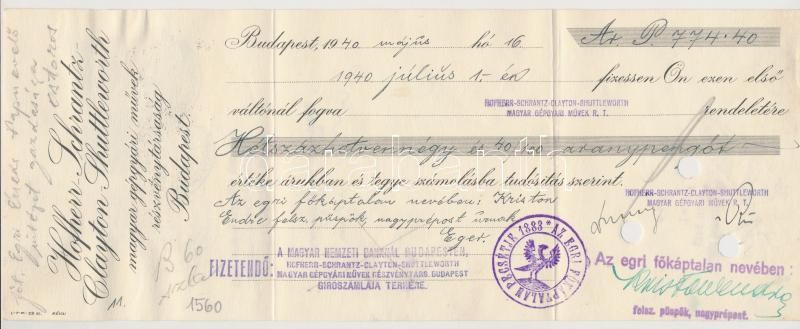 Hofherr Schrantz
Clayton Shuttleworth
magyar gépgyári művek
részvénytársaság
Budapest.
Budapest, 1940 május hó 16.
Ar. P. 774.40
1940 július 1.-én fizessen Ön ezen első
váltónál fogva HOFHERR-SCHRANTZ-CLAYTON-SHUTTLEWORTH
MAGYAR GÉPGYÁRI MŰVEK R. T. rendeletére
Hétszázhetvennégy és 40/100 aranypengőt
értéke árukban és tegye számolásba tudósítás szerint.
HOFHERR-SCHRANTZ-CLAYTON-SHUTTLEWORTH
MAGYAR GÉPGYÁRI MŰVEK R. T.
Az egri főkáptalan nevében: Kriston
Endre felsz. püspök, nagyprépost úrnak
Eger.
FIZETENDŐ:
A MAGYAR NEMZETI BANKNÁL BUDAPESTEN,
HOFHERR-SCHRANTZ-CLAYTON-SHUTTLEWORTH
MAGYAR GÉPGYÁRI MŰVEK RÉSZVÉNYTÁRS. BUDAPEST
GIROSZÁMLÁJA TERHÉRE.
AZ EGRI FŐKÁPTALAN PECSÉTJE 1883
Az egri főkáptalan nevében:
Kriston Endre
felsz. püspök, nagyprépost.
11.
1560